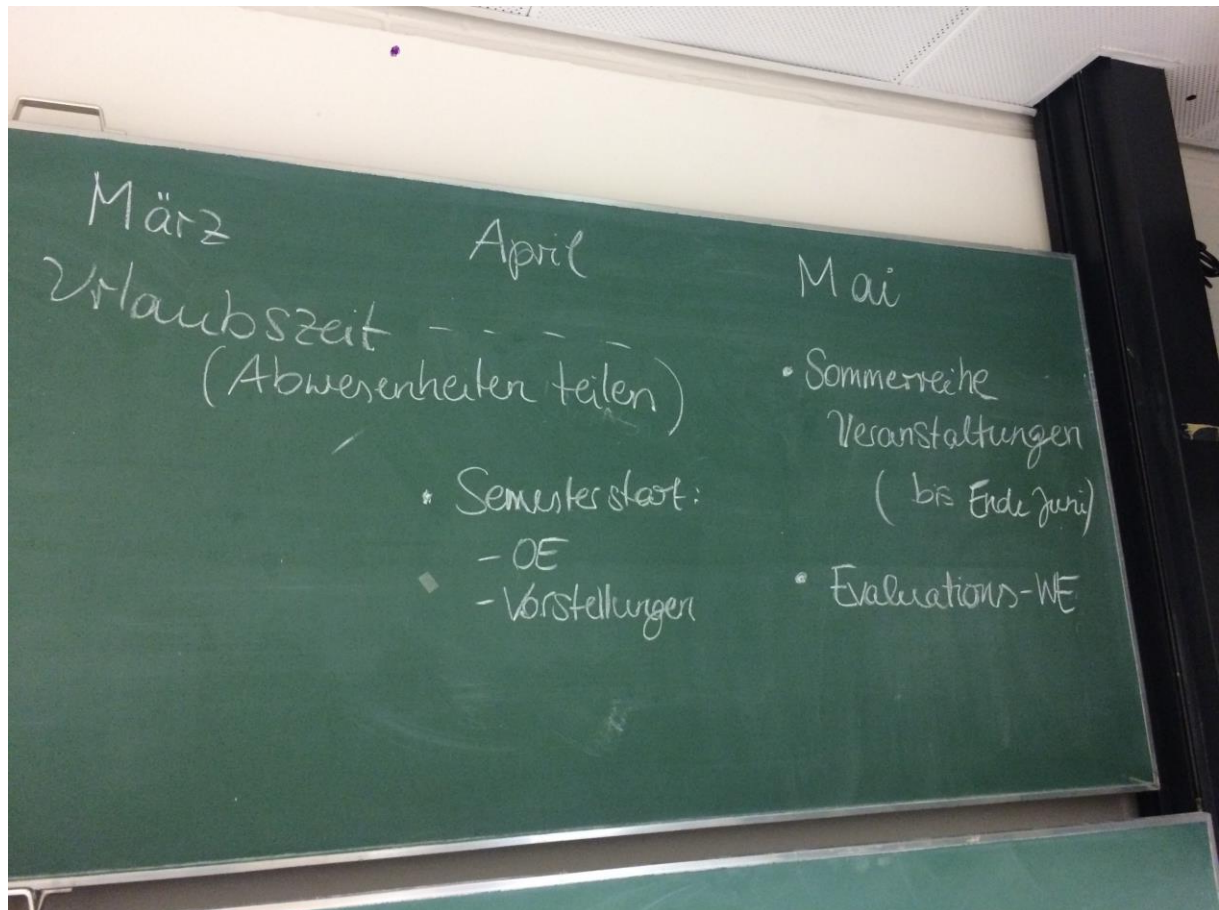 März
Urlaubszeit - - - -
(Abwesenheiten teilen)
April
• Semesterstart:
- OE
- Vorstellungen
Mai
• Sommerreihe
Veranstaltungen
(bis Ende Juni)
• Evaluations-WE